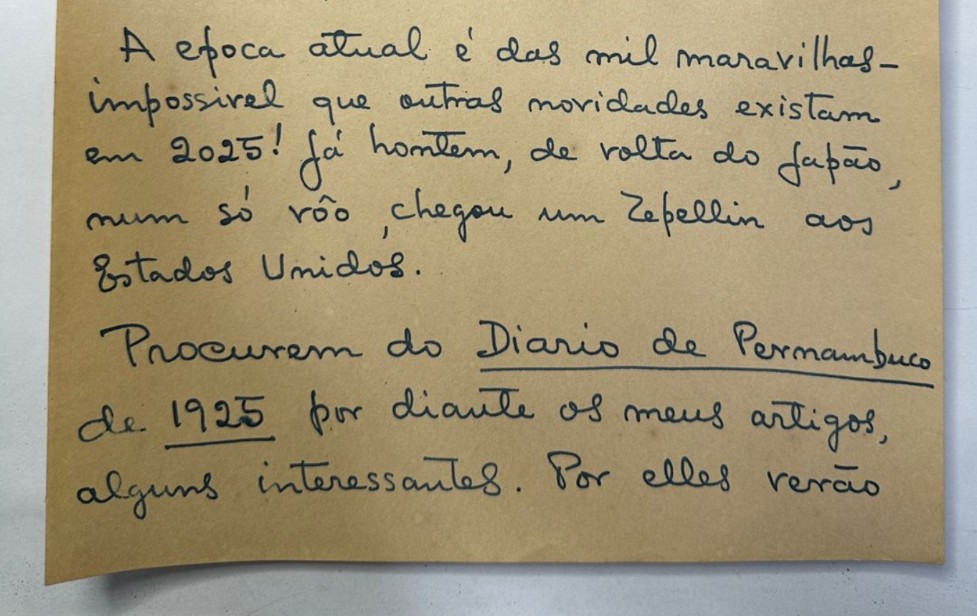 A epoca atual é das mil maravilhas-
impossivel que outras novidades existam
em 2025! Já hontem, de volta do Japão,
num só vôo, chegou um Zepellin aos
Estados Unidos.
Procurem do Diario de Pernambuco
de 1925 por diante os meus artigos,
alguns interessantes. Por elles verão